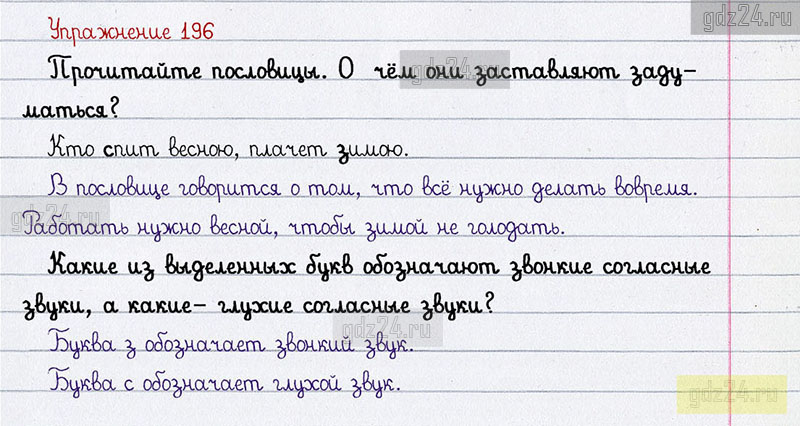 gdz24.ru
Упражнение 196
Прочитайте пословицы. О чём они заставляют заду-
gdz24.ru
маться?
Кто спит весною, плачет зимою.
В пословице говорится о том, что всё нужно делать вовремя.
gdz24.ru
Работать нужно весной, чтобы зимой не голодать.
Какие из выделенных букв обозначают звонкие согласные
звуки, а какие- глухие согласные звуки?
gdz24.ru
Буква з обозначает звонкий звук.
Буква с обозначает глухой звук.
gdz24.ru